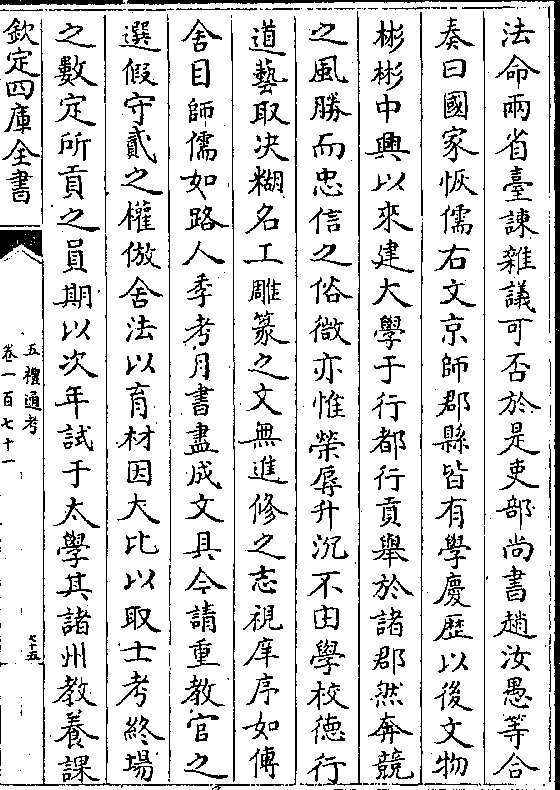 法命兩省臺諫雜議可否於是吏部尚書趙汝愚等合
奏曰國家恢儒右文京師郡縣皆有學慶歷以後文物
彬彬中興以來建大學于行都行貢舉於諸郡然奔競
之風勝而忠信之俗微亦惟榮辱升沉不由學校德行
道藝取决糊名工雕篆之文無進修之志視庠序如傳
舍目師儒如路人季考月書盡成文具今請重教官之
選假守貳之權倣舍法以育材因大比以取士考終場
之數定所貢之員期以次年試于太學其諸州教養課
欽定四庫全書
五禮通考
卷一百七十一
七十五